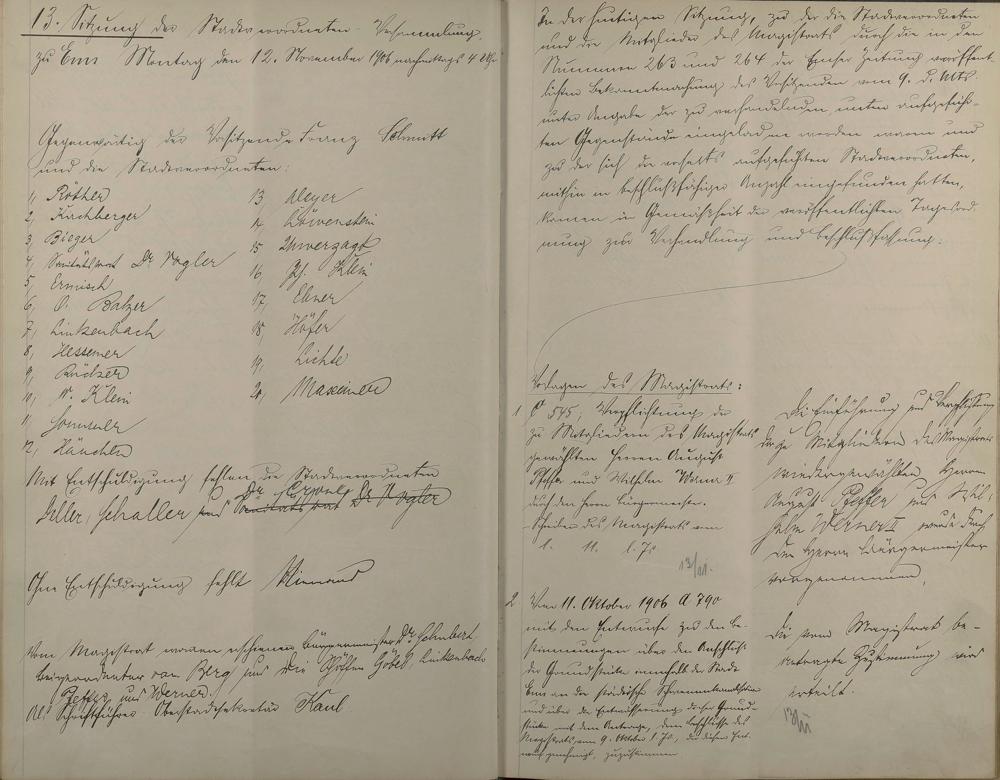 13. Sitzung der Stadtverordneten-Versammlung
zu Ems Montag den 12. November 1906 nachmittags 4 Uhr
Gegenwärtig der Vorsitzende Franz Schmitt
und die Stadtverordneten:
1, Röther
2, Kirchberger
3, Bieger
4, Sanitätsrat Dr. Vogler
5, Ermisch
6, O. Balzer
7, Linkenbach
8, Hessemer
9,
10, W. Klein
11, Sommer
12,
13 Meyer
14, Löwenstein
15 Unverzagt
16, Ph. Klein
17, Ebner
18, Höfer
19, Lichte
20, Maxeiner
Mit Entschuldigung fehlen die Stadtverordneten
Dr.
Schaller und Sanitätsrat Dr. Vogler
Ohne Entschuldigung fehlt Niemand
Vom Magistrat waren erschienen Bürgermeister Dr. Schubert
Beigeordneter von Berg und die Schöffen Göbel, Linkenbach
Pfeffer und Werner.
Als Schriftführer Oberstadtsekretär Kaul
In der heutigen Sitzung, zu der die Stadtverordneten
und die Mitglieder des Magistrats durch die in den
Nummern 263 und 264 der Emser Zeitung veröffent-
lichten Bekanntmachung des Vorsitzenden vom 9. d. Mts.
unter Angabe der zu verhandelnden, unten aufgeführ-
ten Gegenstände eingeladen worden waren und
zu der sich die vorseits aufgeführten Stadtverordneten,
mithin in beschlußfähiger Anzahl eingefunden hatten,
kamen in Gemäßheit der veröffentlichten Tagesord-
nung zur Verhandlung und Beschlußfassung:
Vorlagen des Magistrats:
1 545; Verpflichtung der
zu Mitgliedern des Magistrats
gewählten Herren August
Pfeffer und Wilhelm Werner II
durch den Herrn Bürgermeister.
Schreiben des Magistrats vom
1. 11. l. Js
13/11.
Die Einführung und Verpflichtung
der zu Mitgliedern des Magistrats
wiedergewählten Herren
August Pfeffer und Wil-
helm Werner II wurde durch
den Herrn Bürgermeister
vorgenommen.
2 Vom 11. Oktober 1906 A 790
mit dem Entwurfe zu den Be-
stimmungen über den Anschluß
der Grundstücke innerhalb der Stadt
Ems an die städtische Schwemmkanalisation
und über die Entwässerung dieser Grund-
stücke mit dem Antrage, dem Beschlusse des
Magistrats vom 9. Oktober l. Js., der diesen Ent-
wurf genehmigt, zuzustimmen
Die vom Magistrat be-
antragte Zustimmung wird
erteilt.